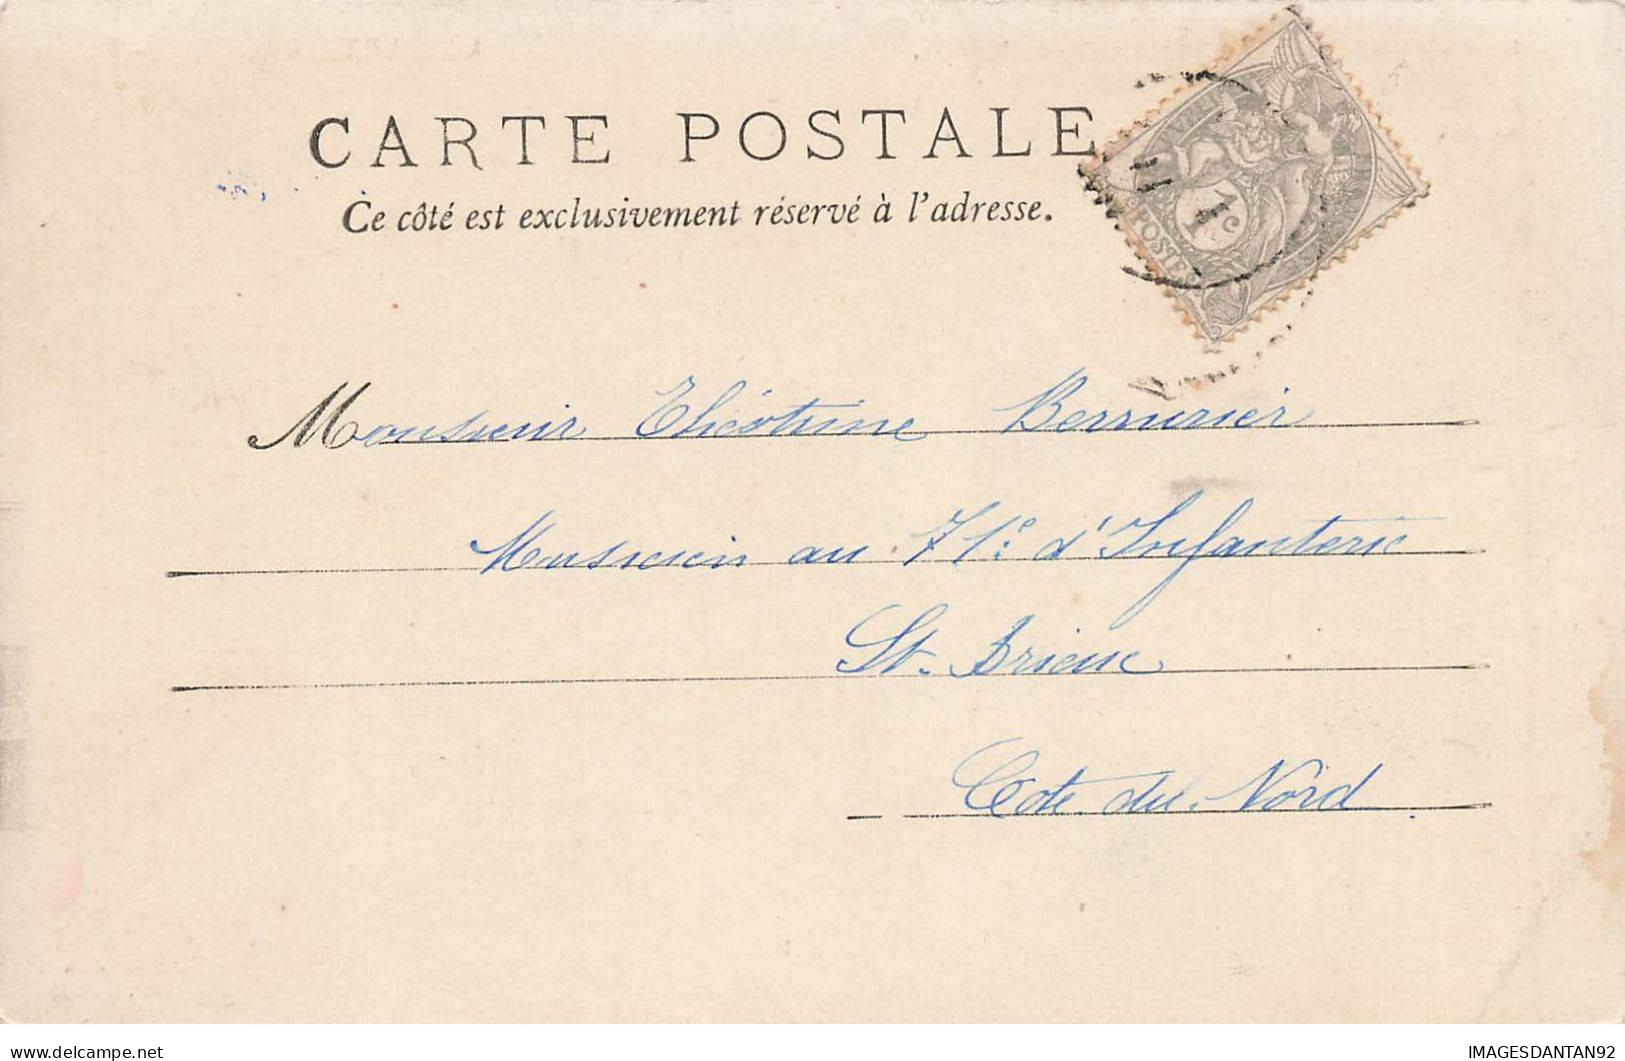 CARTE POSTALE
Ce côté est exclusivement réservé à l'adresse.
1c
POSTES
11
Monsieur Berrurier
Musicien au 71e d'Infanterie
St. Brieuc
Cote du Nord
delcampe.net
IMAGESDANTAN92